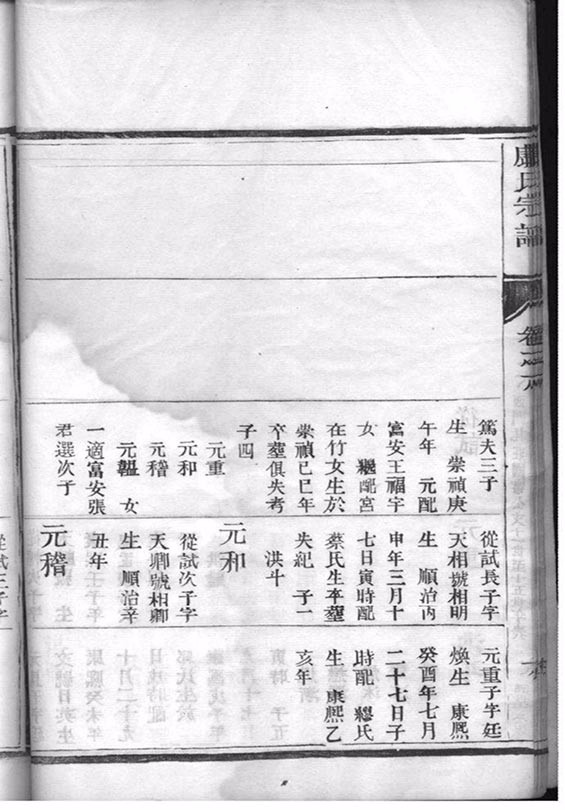 盧氏宗譜
卷之八
篤夫三子
生 崇禎庚
午年 元配
富安王福字
女 繼配宮
在竹女生於
崇禎己巳年
卒塟俱失考
子四
元重
元和
元稽
元韞 女
一適富安張
君選次子
從試長子字
天相號相明
生 順治丙
申年三月十
七日寅時配
蔡氏生卒塟
失紀 子一
洪斗
元和
從試次子字
天卿號相卿
生 順治辛
丑年
元稽
元重子字廷
煥生 康熙
癸酉年七月
二十七日子
時配 繆氏
生 康熙乙
亥年
從試三子字